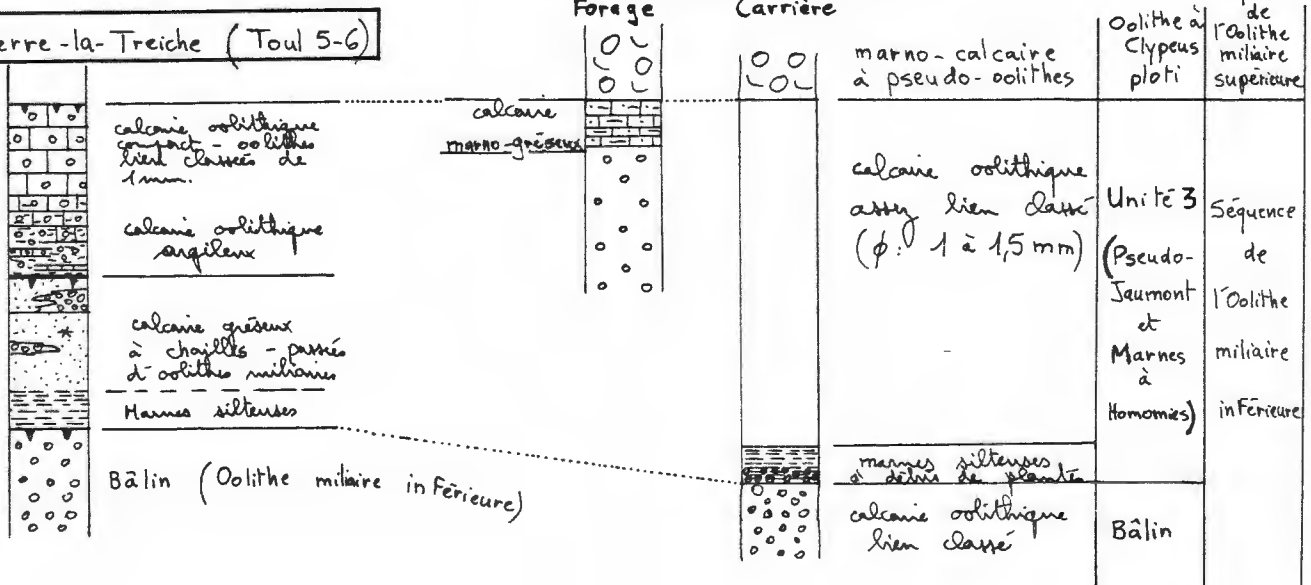 erre-la-Treiche (Toul 5-6)
calcaire oolithique
compact - oolithes
bien classées de
1mm.
calcaire oolithique
argileux
calcaire gréseux
à chailles - passées
d'oolithes miliaires
Marnes silteuses
Bâlin (Oolithe miliaire inférieure)
Forage
calcaire
marno-gréseux
Carrière
marno-calcaire
à pseudo-oolithes
calcaire oolithique
assez bien classé
(ϕ: 1 à 1,5 mm)
marnes silteuses
à débris de plantes
calcaire oolithique
bien classé
Oolithe à
Clypeus
ploti
Unité 3
(Pseudo-
Jaumont
et
Marnes
à
Homomies)
Bâlin
de
l'Oolithe
miliaire
supérieure
Séquence
de
l'Oolithe
miliaire
inférieure